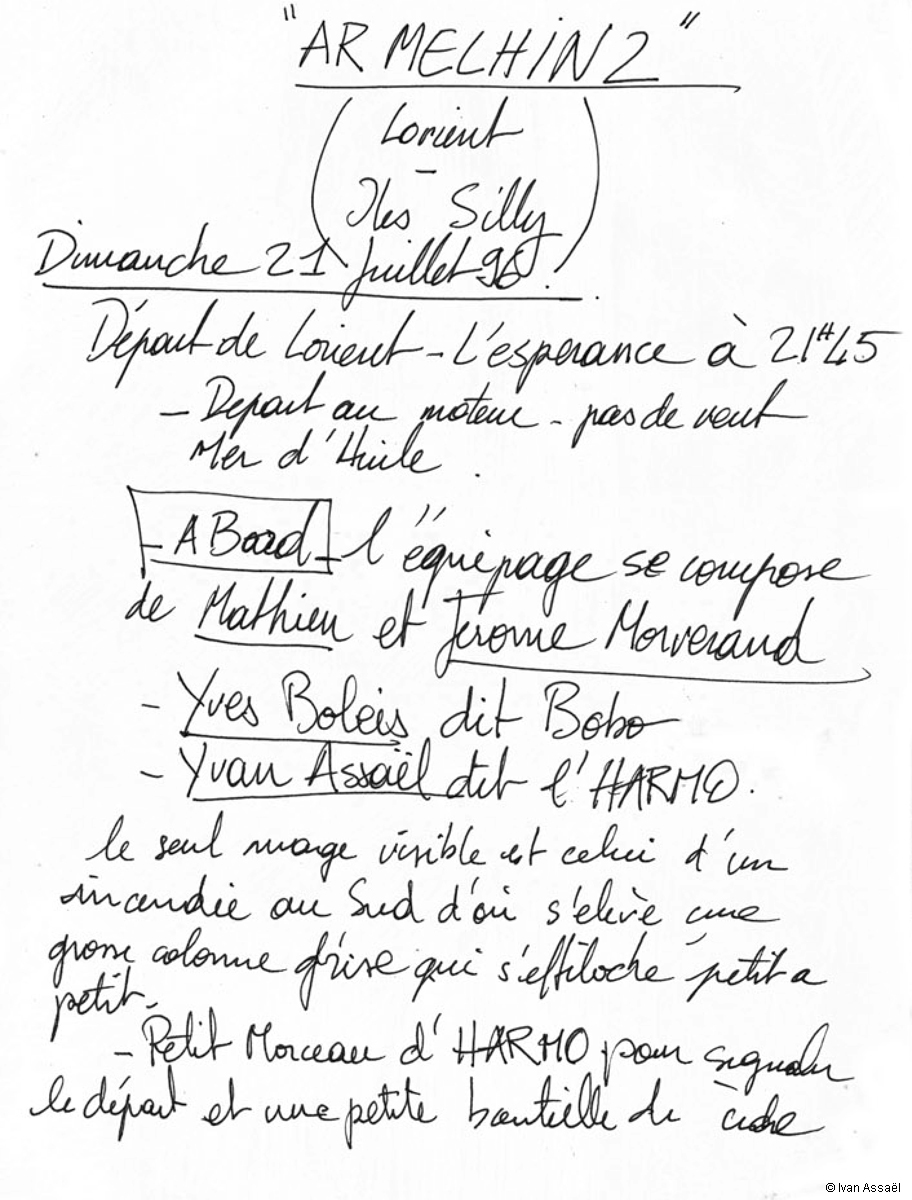 "AR MELCHIN 2"
(Lorient
-
Iles Silly)
Dimanche 21 Juillet 96!
Départ de Lorient - L'esperance à 21H45
- Depart au moteur - pas de vent
Mer d'Huile.
- A Bord - l'équipage se compose
de Mathieu et Jérome Morverand
- Yves Boleis dit Bobo
- Yvan Assaël dit l'HARMO.
le seul nuage visible est celui d'un
incendie au Sud d'où s'élève une
grosse colonne grise qui s'effiloche petit a
petit.
- Petit Morceau d'HARMO pour signaler
le départ et une petite bouteille de cidre
© Ivan Assaël